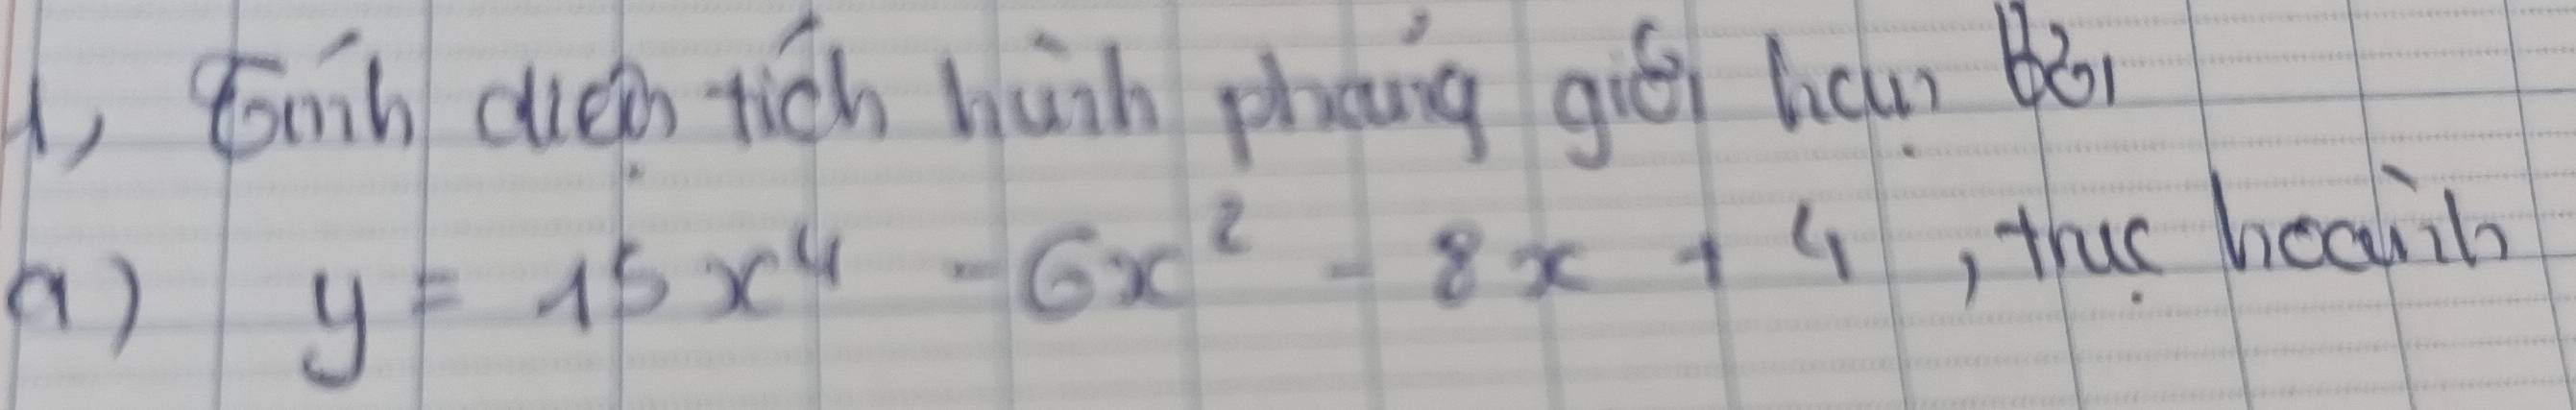 1, Tính diện tích hình phẳng giới hạn bởi
a) y = 15x⁴ - 6x² - 8x + 4, trục hoành